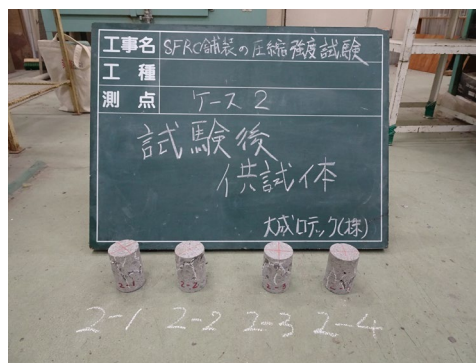 工事名 SFRC舗装の圧縮強度試験
工種
測点 ケース2
試験後
供試体
大成ロテック(株)
2-1 2-2 2-3 2-4